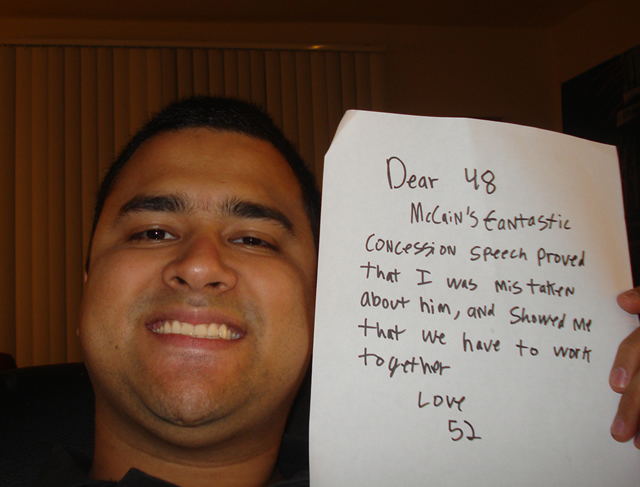 Dear 48
McCain's fantastic
concession speech proved
that I was mistaken
about him, and showed me
that we have to work
together
Love
52